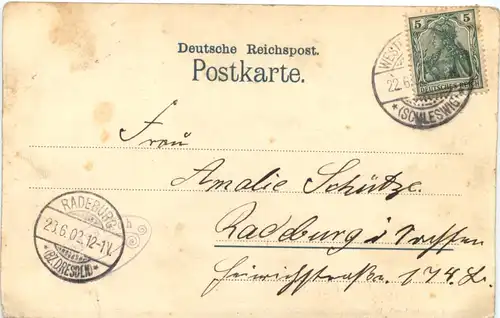 Deutsche Reichspost.
Postkarte.
5 5
DEUTSCHES REICH
WEST
22.6
*(SCHLESWIG)*
Frau
Amalie Schütze
Radeburg i Sachsen
174
RADEBURG
23.6.02.12-1V.
*(BZ.DRESDEN)*